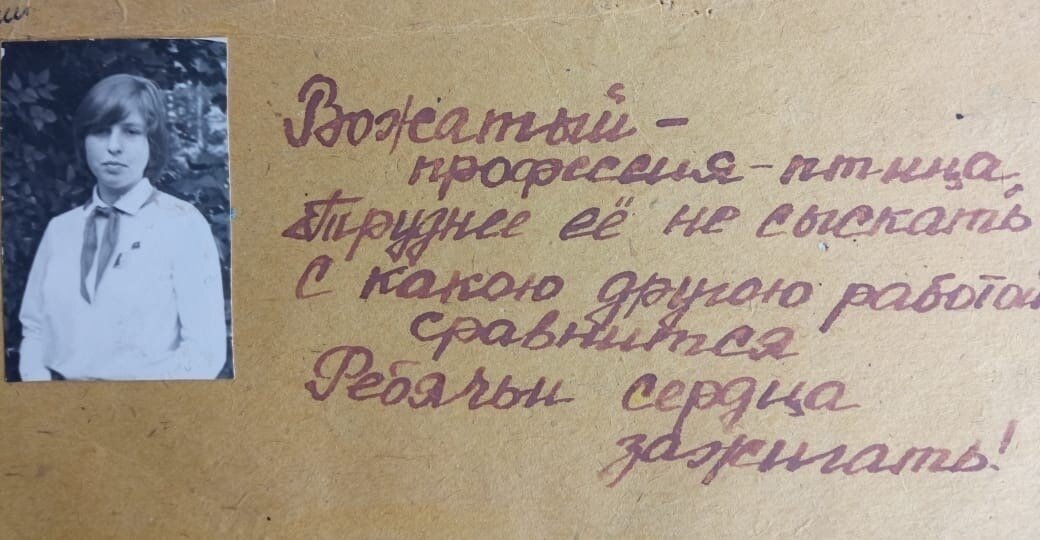 Вожатый -
профессия - птица,
Труднее её не сыскать
С какою другою работой
сравнится
Ребячьи сердца
зажигать!